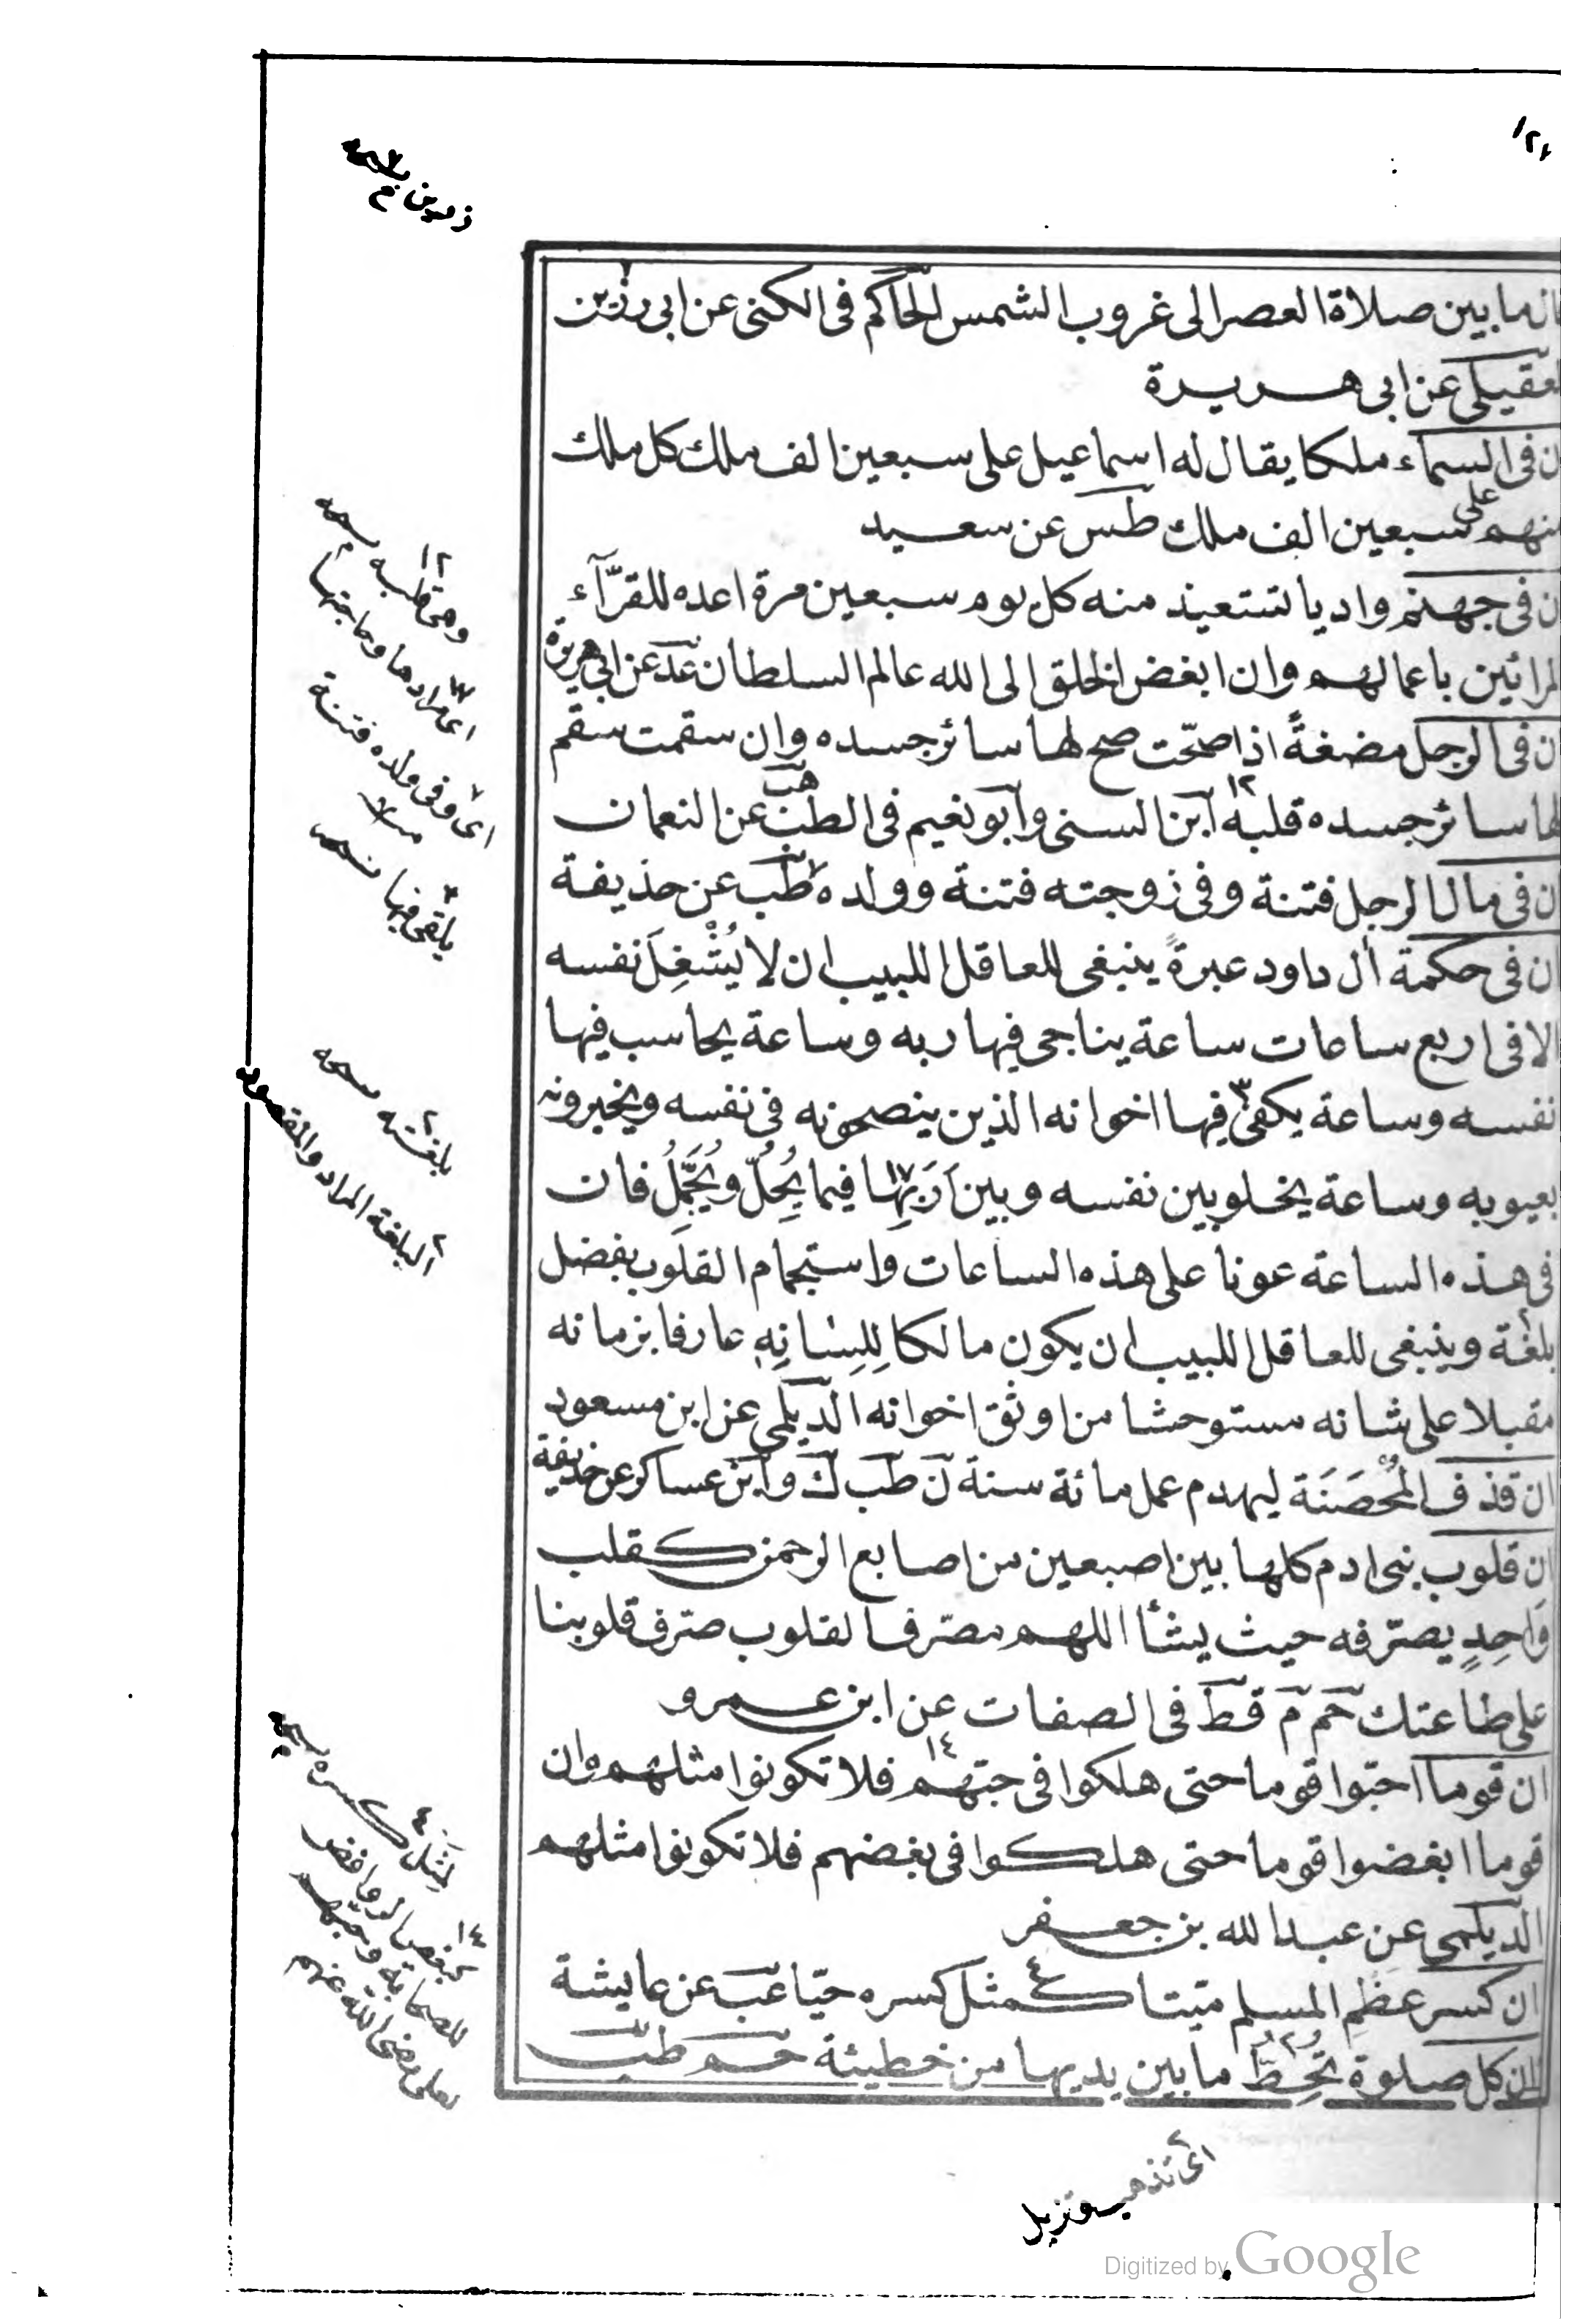 ما بين صلاة العصر الى غروب الشمس الحاكم فى الكنى عن ابى رزين
العقيلى عن ابى هريرة
ان فى السماء ملكا يقال له اسماعيل على سبعين الف ملك كل ملك
منهم على سبعين الف ملك طس عن سعيد
ان فى جهنم واديا تستعيذ منه كل يوم سبعين مرة اعده للقرّآء
المرائين باعمالهم وان ابغض الخلق الى الله عالم السلطان عد عن ابى هريرة
ان فى الرجل مضغةً اذا صحّت صح لها سائر جسده وان سقمت سقم
لها سائر جسده قلبه ١٢ ابن السنى وابو نعيم فى الطب هب عن النعمان
ان فى مال الرجل فتنة وفى زوجته فتنة وولده ٧ طب عن حذيفة
ان فى حكمة أل داود عبرةً ينبغى للعاقل اللبيب ان لا يُشْغِلَ نفسه
الا فى اربع ساعات ساعة يناجى فيها ربه وساعة يحاسب فيها
نفسه وساعة يكفى ٣ فيها اخوانه الذين ينصحونه فى نفسه ويخبرونه
بعيوبه وساعة يخلو بين نفسه وبين اَرَبِهَا ١٧ فيما يُحِلّ ويُجَمِّلُ فان
فى هذه الساعة عونا على هذه الساعات واستجمام القلوب بفضل
بلغة ٢ وينبغى للعاقل اللبيب ان يكون مالكا لِلِسَانِهِ عارفا بزمانه
مقبلا على شانه مستوحشا من اوثق اخوانه الديلمى عن ابن مسعود
ان قذف المُحصَنَة ليهدم عمل مائة سنة ن طب ك وابن عساكر عن حذيفة
ان قلوب بنى ادم كلها بين اصبعين من اصابع الرحمن كقلب
وَاحِدٍ يصرّفه حيث يشأ اللهم مصرف القلوب صرّف قلوبنا
على طاعتك حم م قط فى الصفات عن ابن عمرو
ان قوما احبّوا قوما حتى هلكوا فى حبّهم ١٤ فلا تكونوا مثلهم وان
قوما ابغضوا قوما حتى هلكوا فى بغضهم فلا تكونوا مثلهم
الديلمى عن عبد الله بن جعفر
ان كسر عظم المسلم ميّتا كمثل ٤ كسره حيّا عب عن عايشة
ان كل صلوة تَحُطّ ٢ ما بين يديها من خطيئة حم طب
وهى قلبه نسخه ١٢
اى مرادها وحاجتها ١٧
اى وفى ولده فتنة ٧
يلقى فيها نسخه ٣
بلغته نسخه ٢
البلغة المراد والمقصود ٢
لمثل كسره ٤
كبغض الروافض ١٤
للصحابة وحبّهم
لعلى رضى الله عنهم
اى تذهب وتزيل ٢
Digitized by Google